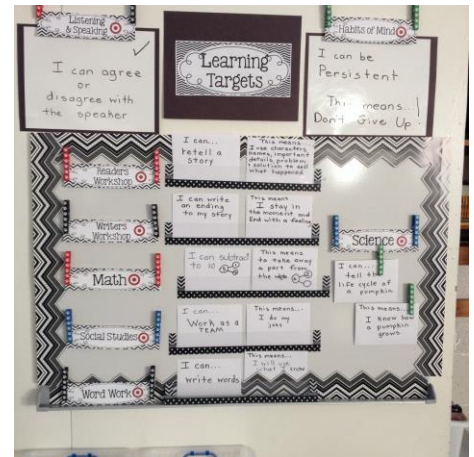 Listening
& Speaking
I can agree
or
disagree with
the speaker
Learning
Targets
Habits of Mind
I can be
Persistent
This means...
Don't Give Up!
Readers
Workshop
I can...
retell a
story
This means...
I use characters,
names, important
details, problem
+ solution to tell
what happened
Writers
Workshop
I can write
an ending
to my story
This means
I stay in
the moment and
End with a feeling
Math
I can subtract
to 10
This means
to take away
a part from
the
Social Studies
I can...
Work as a
TEAM
This means...
I do my
jobs
Word Work
I can...
write words
This means...
I will use
what I know
Science
I can...
tell the
life cycle of
a pumpkin
This means...
I know how
a pumpkin
grows